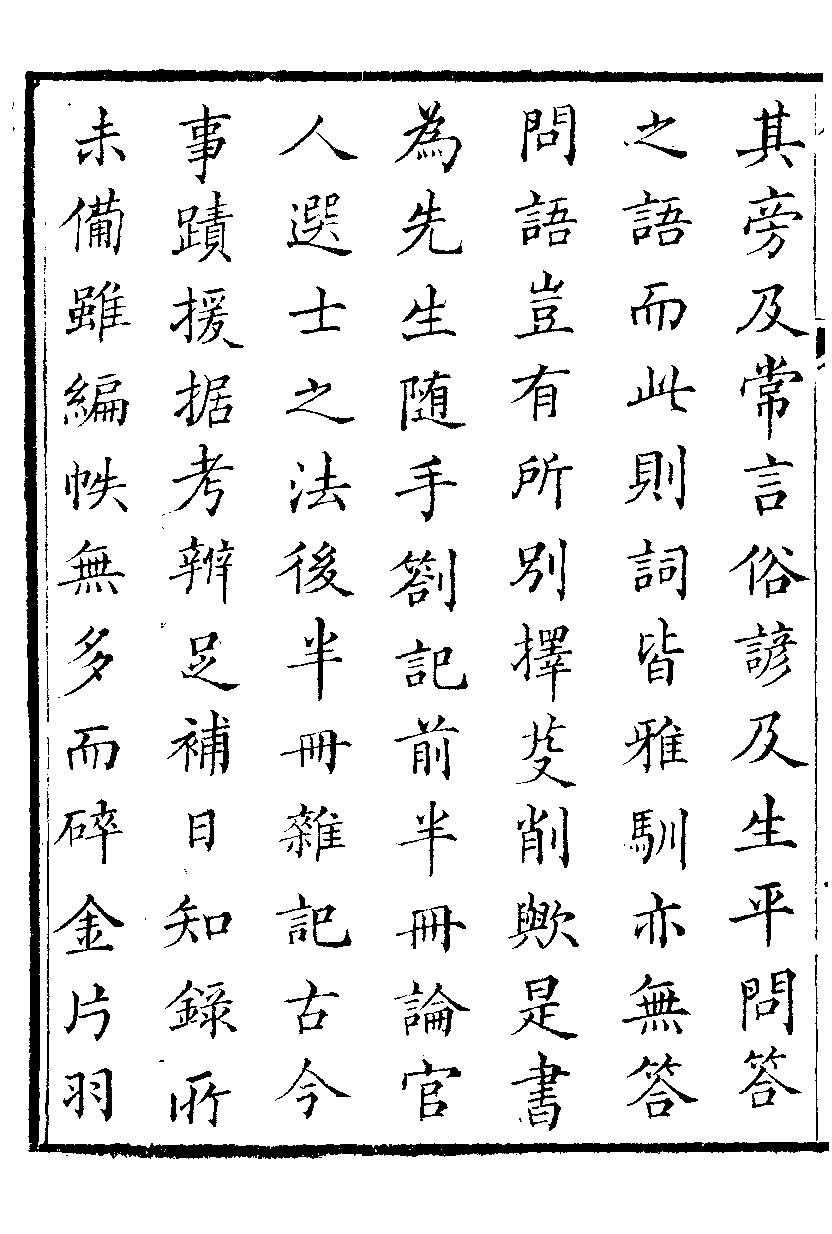 其旁及常言俗諺及生平問答
之語而此則詞皆雅馴亦無答
問語豈有所別擇芟削歟是書
為先生随手劄記前半冊論官
人選士之法後半冊雜記古今
事蹟援据考辨足補日知錄所
未備雖編帙無多而碎金片羽